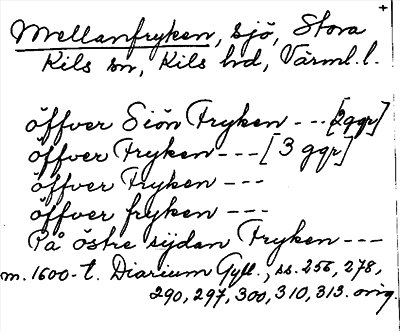 Mellanfryken, sjö, Stora
Kils sn, Kils hd, Värml. l.
öffver Siön Fryken --- [2 ggr]
öffver Fryken --- [3 ggr]
öffver Fryken ---
öffver fryken ---
På östre sijdan Fryken ---
m. 1600-t. Diarium Gyll., ss. 256, 278,
290, 297, 300, 310, 313. orig.